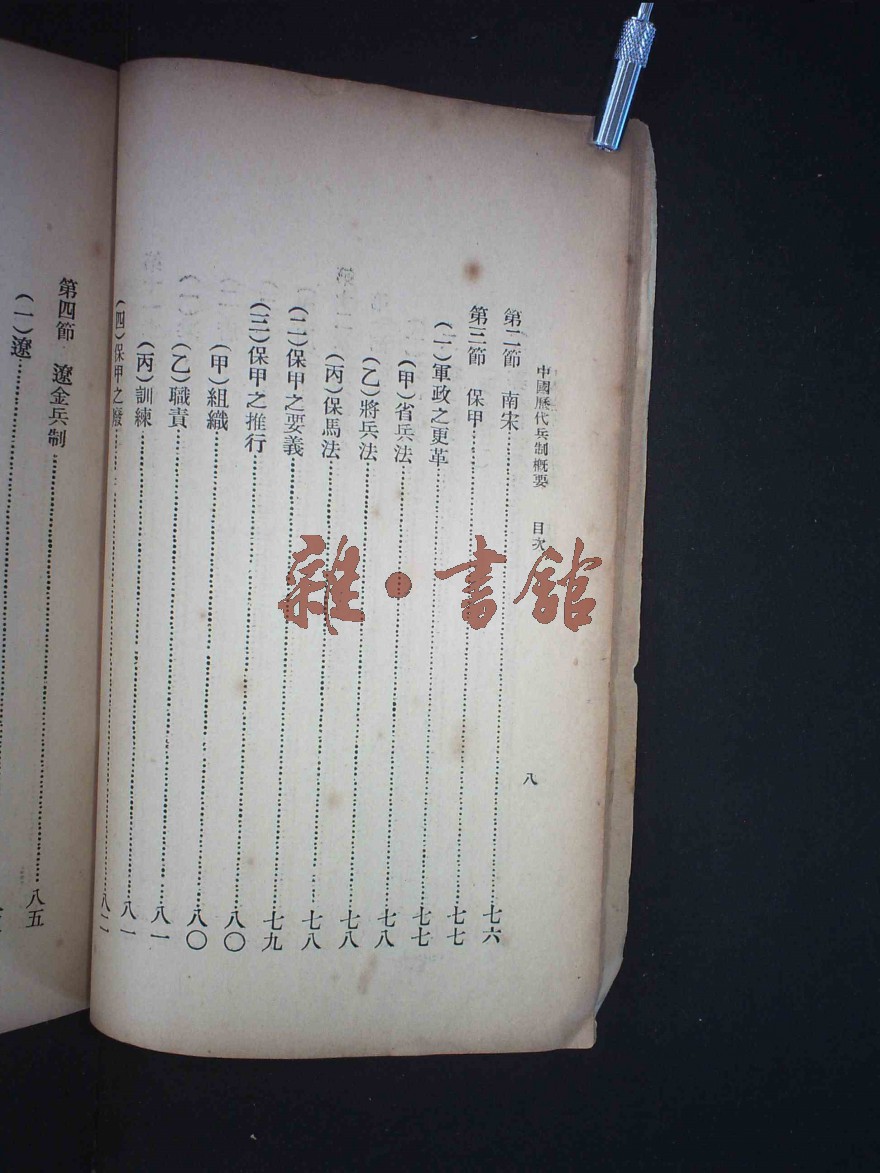 中國歷代兵制概要 目次 八
第二節 南宋……七六
第三節 保甲……七七
(一)軍政之更革……七七
(甲)省兵法……七八
(乙)將兵法……七八
(丙)保馬法……七八
(二)保甲之要義……七九
(三)保甲之推行……八〇
(甲)組織……八〇
(乙)職責……八一
(丙)訓練……八一
(四)保甲之廢……八二
第四節 遼金兵制……八五
(一)遼……
雜·書館